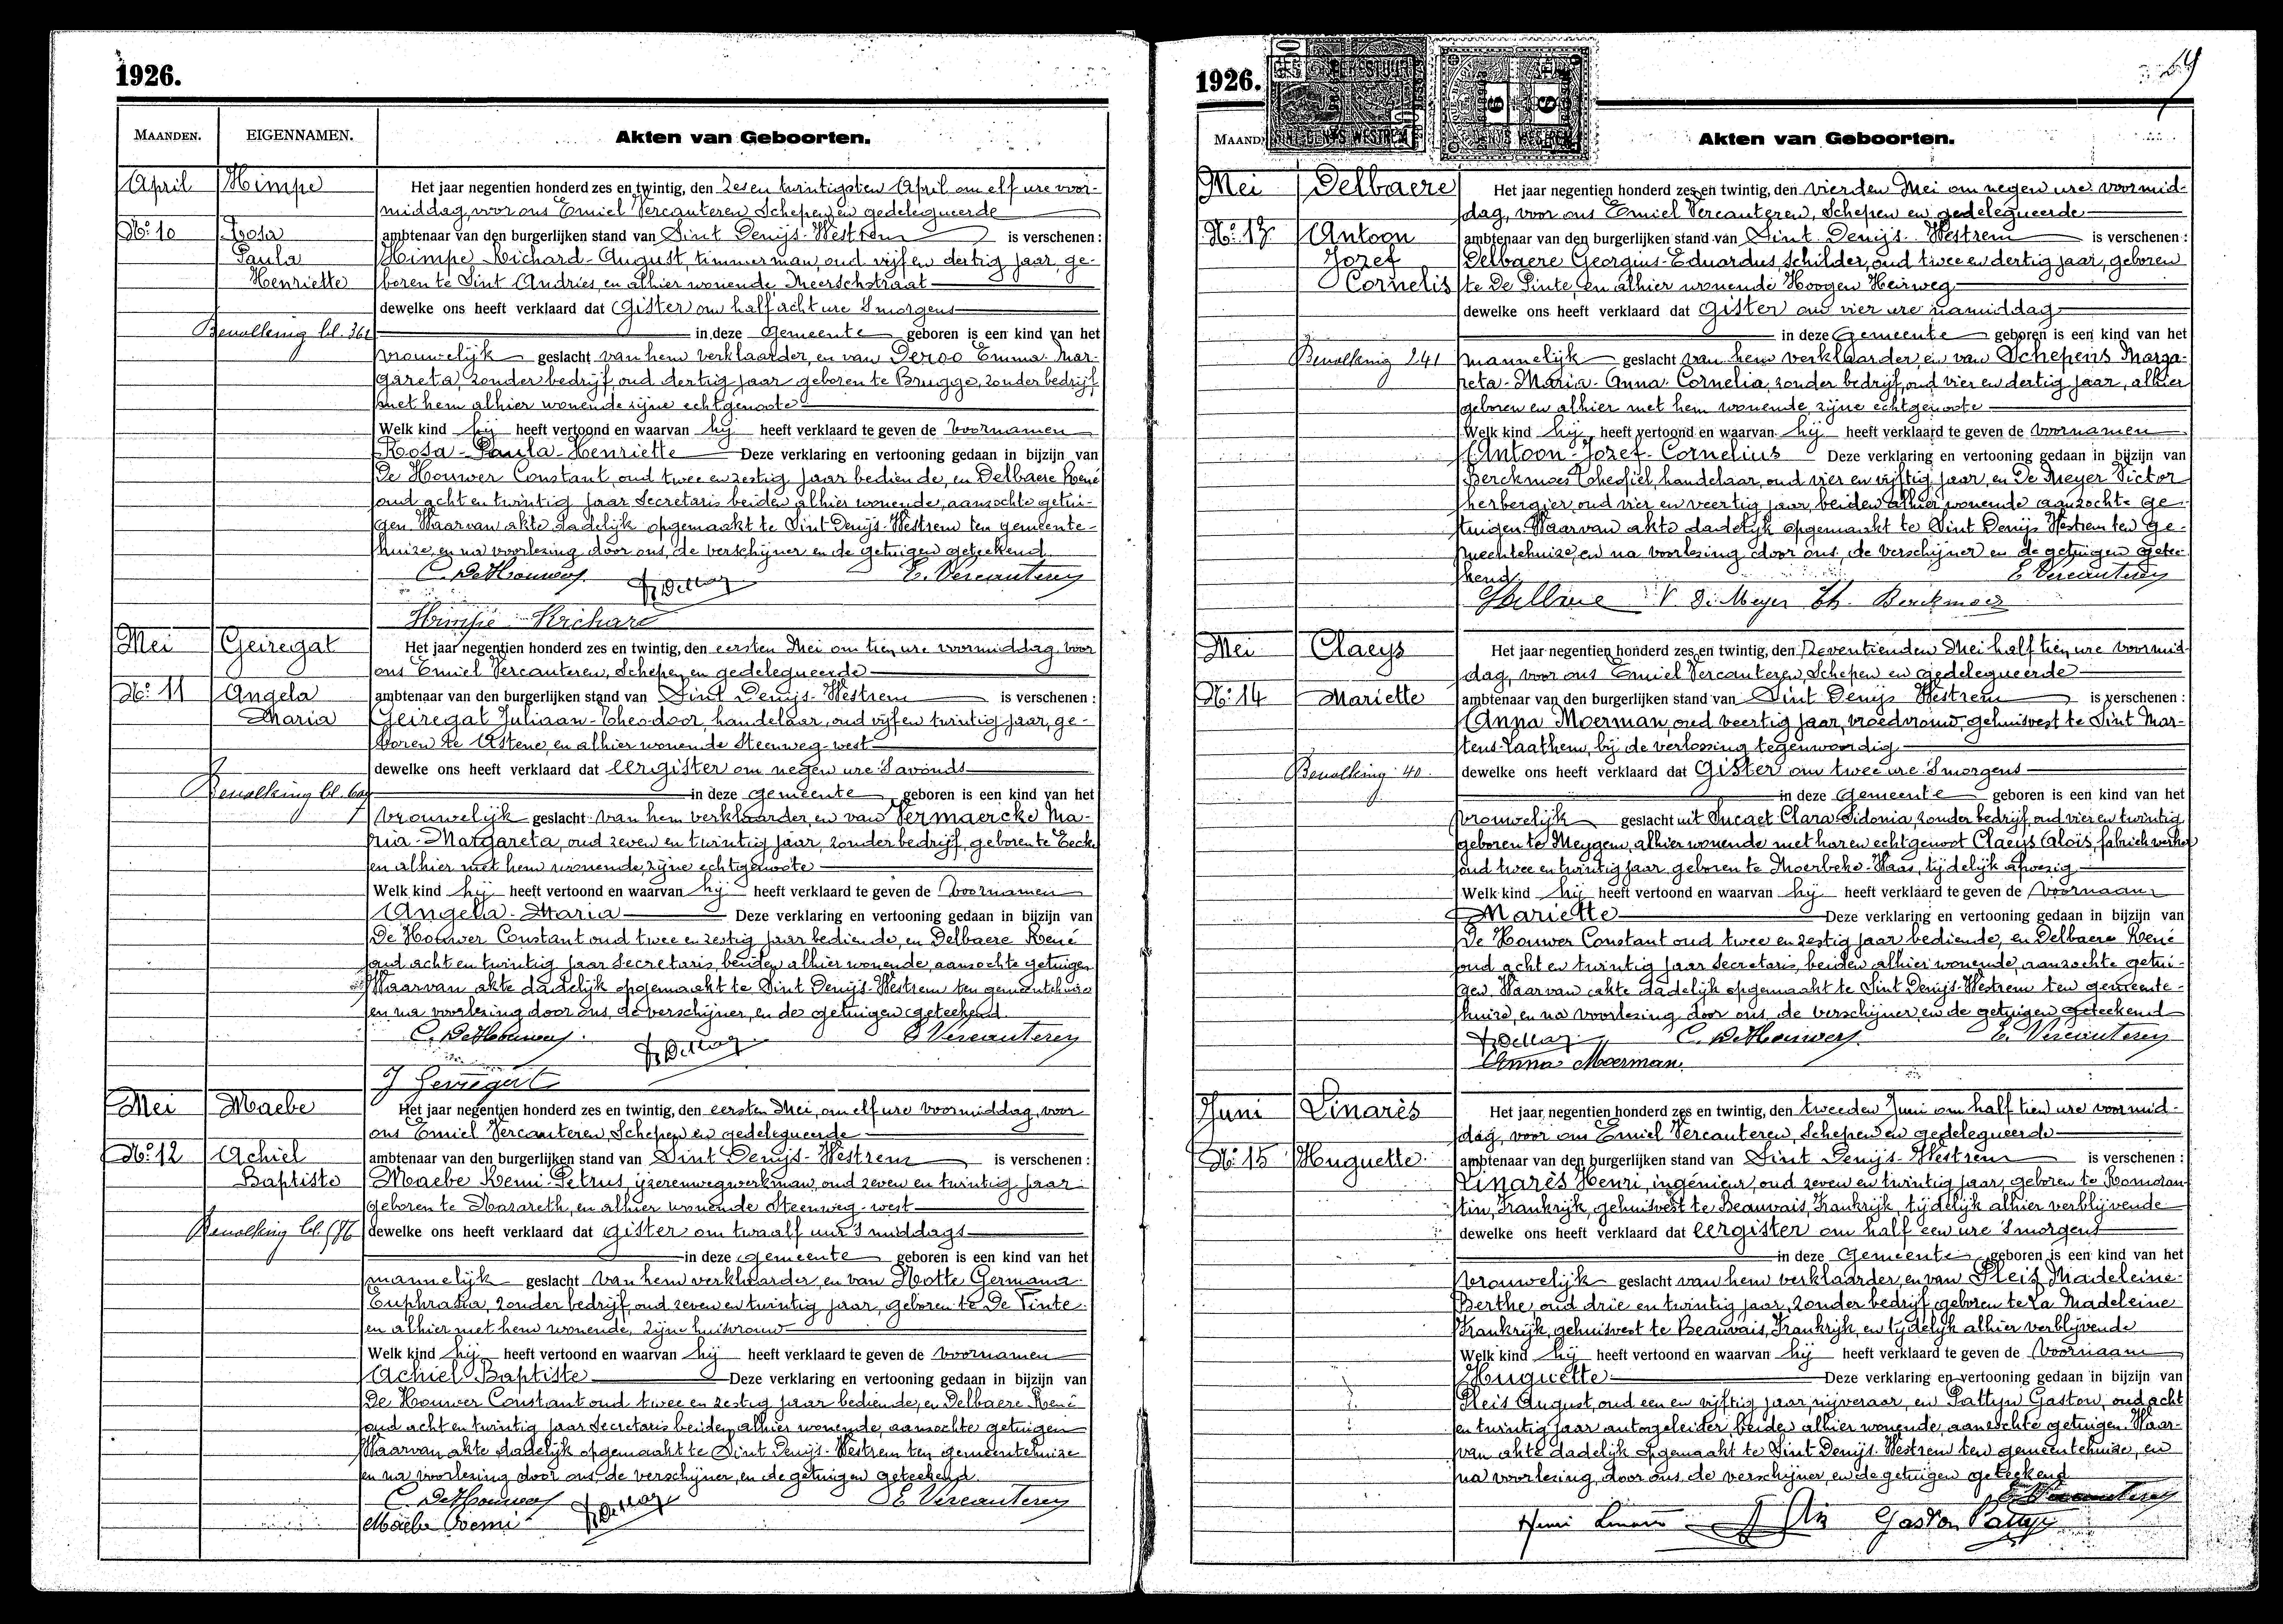 1926.
MAANDEN. EIGENNAMEN. Akten van Geboorten.
April Himpe Het jaar negentien honderd zes en twintig, den zes en twintigsten April om elf ure voor-
middag, voor ons Emiel Vercauteren, Schepen en gedelegueerde
No. 10 Rosa ambtenaar van den burgerlijken stand van Sint Denijs-Westrem is verschenen :
Paula Himpe Richard-August, timmerman, oud vijf en dertig jaar, ge-
Henriette boren te Sint Andries, en alhier wonende, Meerschstraat
dewelke ons heeft verklaard dat Gister om half acht ure 's morgens
Bevolking bl. 361 in deze Gemeente geboren is een kind van het
vrouwelijk geslacht van hem verklaarder, en van Deroo Emma-Mar-
gareta, zonder bedrijf, oud dertig jaar geboren te Brugge, zonder bedrijf
met hem alhier wonende zijne echtgenoote
Welk kind hij heeft vertoond en waarvan hij heeft verklaard te geven de voornamen
Rosa-Paula-Henriette Deze verklaring en vertooning gedaan in bijzijn van
De Houwer Constant, oud twee en zestig jaar bediende, en Delbaere René
oud acht en twintig jaar Secretaris beiden alhier wonende, aanzochte getui-
gen. Waarvan akte dadelijk opgemaakt te Sint Denijs-Westrem ten gemeente-
huize, en na voorlezing door ons, de verschijner en de getuigen geteekend
C. DeHouwer E. Vercauteren
Himpe Richard
Mei Geiregat Het jaar negentien honderd zes en twintig, den eersten Mei om tien ure voormiddag, voor
ons Emiel Vercauteren, Schepen en gedelegueerde
No. 11 Angela ambtenaar van den burgerlijken stand van Sint Denijs-Westrem is verschenen :
Maria Geiregat Juliaan-Theodoor, handelaar, oud vijf en twintig jaar, ge-
boren te Astene, en alhier wonende Steenweg-west
dewelke ons heeft verklaard dat eergister om negen ure 's avonds
Bevolking bl. in deze gemeente geboren is een kind van het
vrouwelijk geslacht van hem verklaarder, en van Vermaercke Ma-
ria-Margareta, oud zeven en twintig jaar, zonder bedrijf, geboren te Eecke
en alhier met hem wonende, zijne echtgenoote
Welk kind hij heeft vertoond en waarvan hij heeft verklaard te geven de voornamen
Angela-Maria Deze verklaring en vertooning gedaan in bijzijn van
De Houwer Constant oud twee en zestig jaar bediende, en Delbaere René
oud acht en twintig jaar secretaris, beiden alhier wonende, aanzochte getuigen
Waarvan akte dadelijk opgemaakt te Sint Denijs-Westrem ten gemeentehuize
en na voorlezing door ons, de verschijner, en de getuigen geteekend
C. DeHouwer E Vercauteren
J Geiregat
Mei Maebe Het jaar negentien honderd zes en twintig, den eersten Mei, om elf ure voormiddag, voor
ons Emiel Vercauteren, Schepen en gedelegueerde
No. 12 Achiel ambtenaar van den burgerlijken stand van Sint Denijs-Westrem is verschenen :
Baptiste Maebe Remi-Petrus, ijzerenwegwerkman, oud zeven en twintig jaar
geboren te Nazareth, en alhier wonende Steenweg-west
Bevolking bl. dewelke ons heeft verklaard dat gister om twaalf uur 's middags
in deze gemeente geboren is een kind van het
mannelijk geslacht van hem verklaarder, en van Hotte Germana
Euphrasia, zonder bedrijf, oud zeven en twintig jaar, geboren te De Pinte
en alhier met hem wonende, zijne huisvrouw
Welk kind hij heeft vertoond en waarvan hij heeft verklaard te geven de voornamen
Achiel Baptiste Deze verklaring en vertooning gedaan in bijzijn van
De Houwer Constant oud twee en zestig jaar bediende, en Delbaere René
oud acht en twintig jaar Secretaris beiden alhier wonende, aanzochte getuigen
Waarvan akte dadelijk opgemaakt te Sint Denijs-Westrem ten gemeentehuize
en na voorlezing door ons, de verschijner, en de getuigen geteekend
C. DeHouwer E Vercauteren
Maebe Remi
1926.
MAAND Akten van Geboorten.
Mei Delbaere Het jaar negentien honderd zes en twintig, den vierden Mei om negen ure voormid-
dag, voor ons Emiel Vercauteren, Schepen en gedelegueerde
No. 13 Antoon ambtenaar van den burgerlijken stand van Sint Denijs-Westrem is verschenen :
Jozef Delbaere Georgius-Eduardus, schilder, oud twee en dertig jaar, geboren
Cornelis te De Pinte, en alhier wonende Hoogen Heirweg
dewelke ons heeft verklaard dat gister om vier ure namiddag
in deze Gemeente geboren is een kind van het
Bevolking 241 mannelijk geslacht van hem verklaarder, en van Schepens Marga-
reta-Maria-Anna-Cornelia, zonder bedrijf, oud vier en dertig jaar, alhier
geboren en alhier met hem wonende, zijne echtgenoote
Welk kind hij heeft vertoond en waarvan hij heeft verklaard te geven de voornamen
Antoon-Jozef-Cornelius Deze verklaring en vertooning gedaan in bijzijn van
Berckmoes Theofiel, handelaar, oud vier en vijftig jaar, en De Meyer Victor
herbergier, oud vier en veertig jaar, beiden alhier wonende aanzochte ge-
tuigen. Waarvan akte dadelijk opgemaakt te Sint Denijs Westrem ten ge-
meentehuize, en na voorlezing door ons, de verschijner en de getuigen getee-
kend E Vercauteren
V. De Meyer Th. Berckmoes
Mei Claeys Het jaar negentien honderd zes en twintig, den zeventienden Mei half tien ure voormid-
dag, voor ons Emiel Vercauteren, Schepen en gedelegueerde
No. 14 Mariette ambtenaar van den burgerlijken stand van Sint Denijs Westrem is verschenen :
Anna Moerman, oud veertig jaar, vroedvrouw, gehuisvest te Sint Mar-
tens-Laathem, bij de verlossing tegenwoordig
Bevolking 40. dewelke ons heeft verklaard dat Gister om twee ure 's morgens
in deze Gemeente geboren is een kind van het
vrouwelijk geslacht uit Clara Sidonia, zonder bedrijf, oud vier en twintig
geboren te Meygem, alhier wonende met haren echtgenoot Claeys Aloïs, fabriekwerker
oud twee en twintig jaar geboren te Moerbeke-Waas, tijdelijk afwezig
Welk kind hij heeft vertoond en waarvan hij heeft verklaard te geven de voornaam
Mariette Deze verklaring en vertooning gedaan in bijzijn van
De Houwer Constant oud twee en zestig jaar bediende, en Delbaere René
oud acht en twintig jaar Secretaris, beiden alhier wonende, aanzochte getui-
gen. Waarvan akte dadelijk opgemaakt te Sint Denijs-Westrem ten gemeente-
huize, en na voorlezing door ons, de verschijner en de getuigen geteekend
C. DeHouwer E. Vercauteren
Anna Moerman
Juni Linarès Het jaar negentien honderd zes en twintig, den tweeden Juni om half tien ure voormid-
dag, voor ons Emiel Vercauteren, Schepen en gedelegueerde
No. 15 Huguette ambtenaar van den burgerlijken stand van Sint Denijs-Westrem is verschenen :
Linarès Henri, ingénieur, oud zeven en twintig jaar, geboren te Romoran-
tin, Frankrijk, gehuisvest te Beauvais, Frankrijk, tijdelijk alhier verblijvende
dewelke ons heeft verklaard dat eergister om half een ure 's morgens
in deze Gemeente geboren is een kind van het
vrouwelijk geslacht van hem verklaarder, en van Pleis Madeleine-
Berthe, oud drie en twintig jaar, zonder bedrijf, geboren te La Madeleine
Frankrijk, gehuisvest te Beauvais, Frankrijk, en tijdelijk alhier verblijvende
Welk kind hij heeft vertoond en waarvan hij heeft verklaard te geven de voornaam
Huguette Deze verklaring en vertooning gedaan in bijzijn van
Pleis August, oud een en vijftig jaar, nijveraar, en Pattyn Gaston, oud acht
en twintig jaar autogeleider, beiden alhier wonende, aanzochte getuigen. Waar-
van akte dadelijk opgemaakt te Sint Denijs-Westrem ten gemeentehuize, en
na voorlezing, door ons, de verschijner, en de getuigen geteekend
E Vercauteren
Henri Linarès Gaston Pattyn